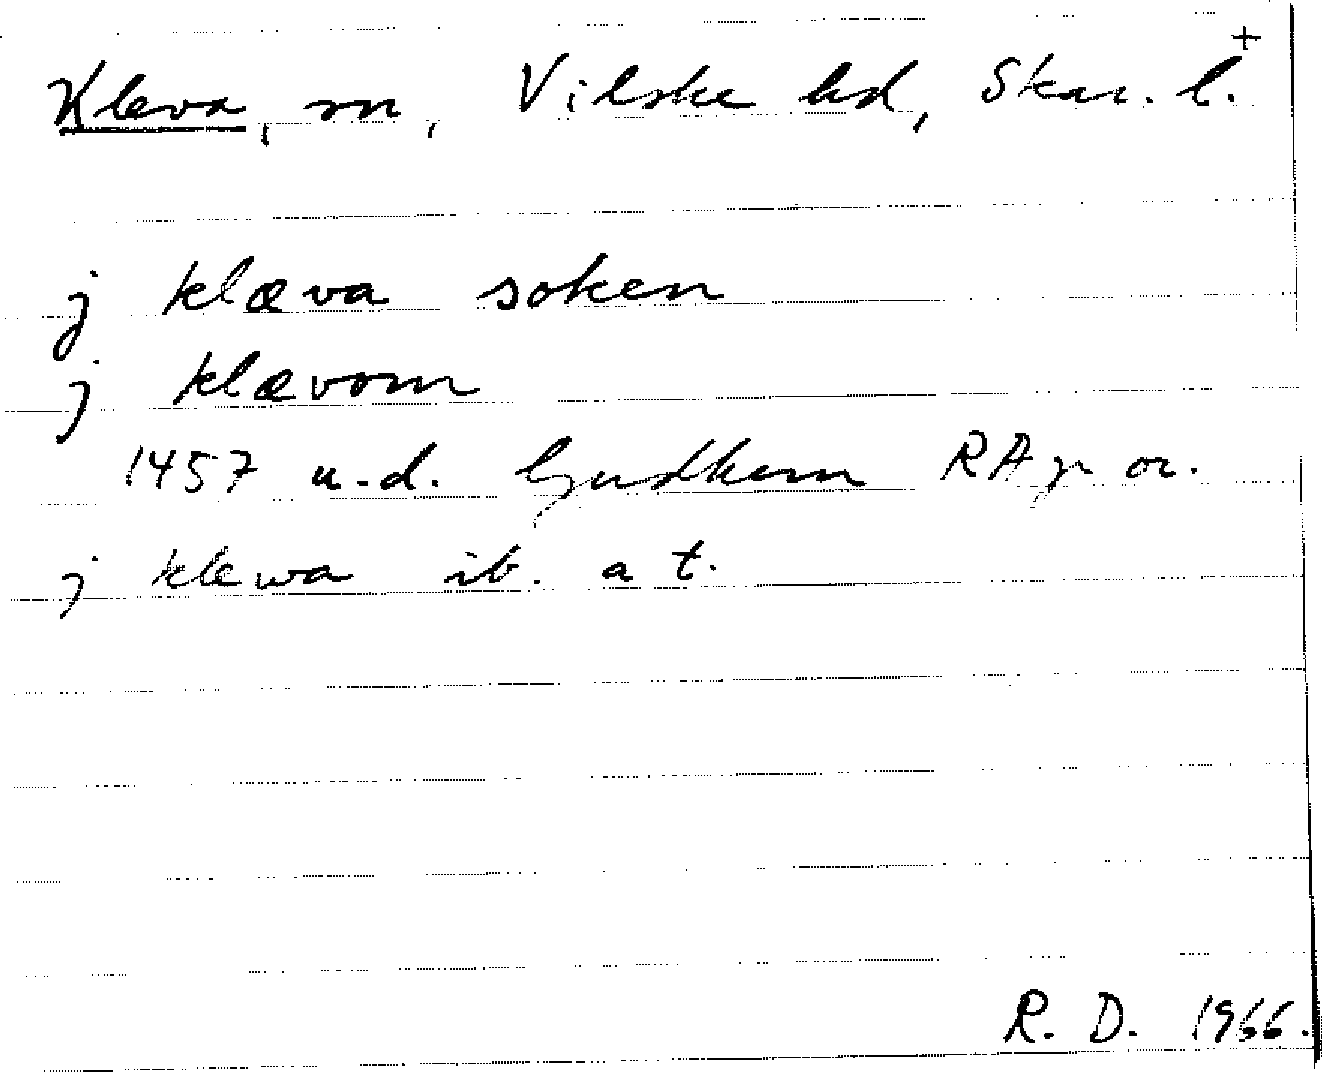 Kleva, sn, Vilske hd, Skar. l.+
j klæva soken
j klævom
1457 u.d. ljudhem RAp or.
j klewa ib. a t.
R. D. 1966.